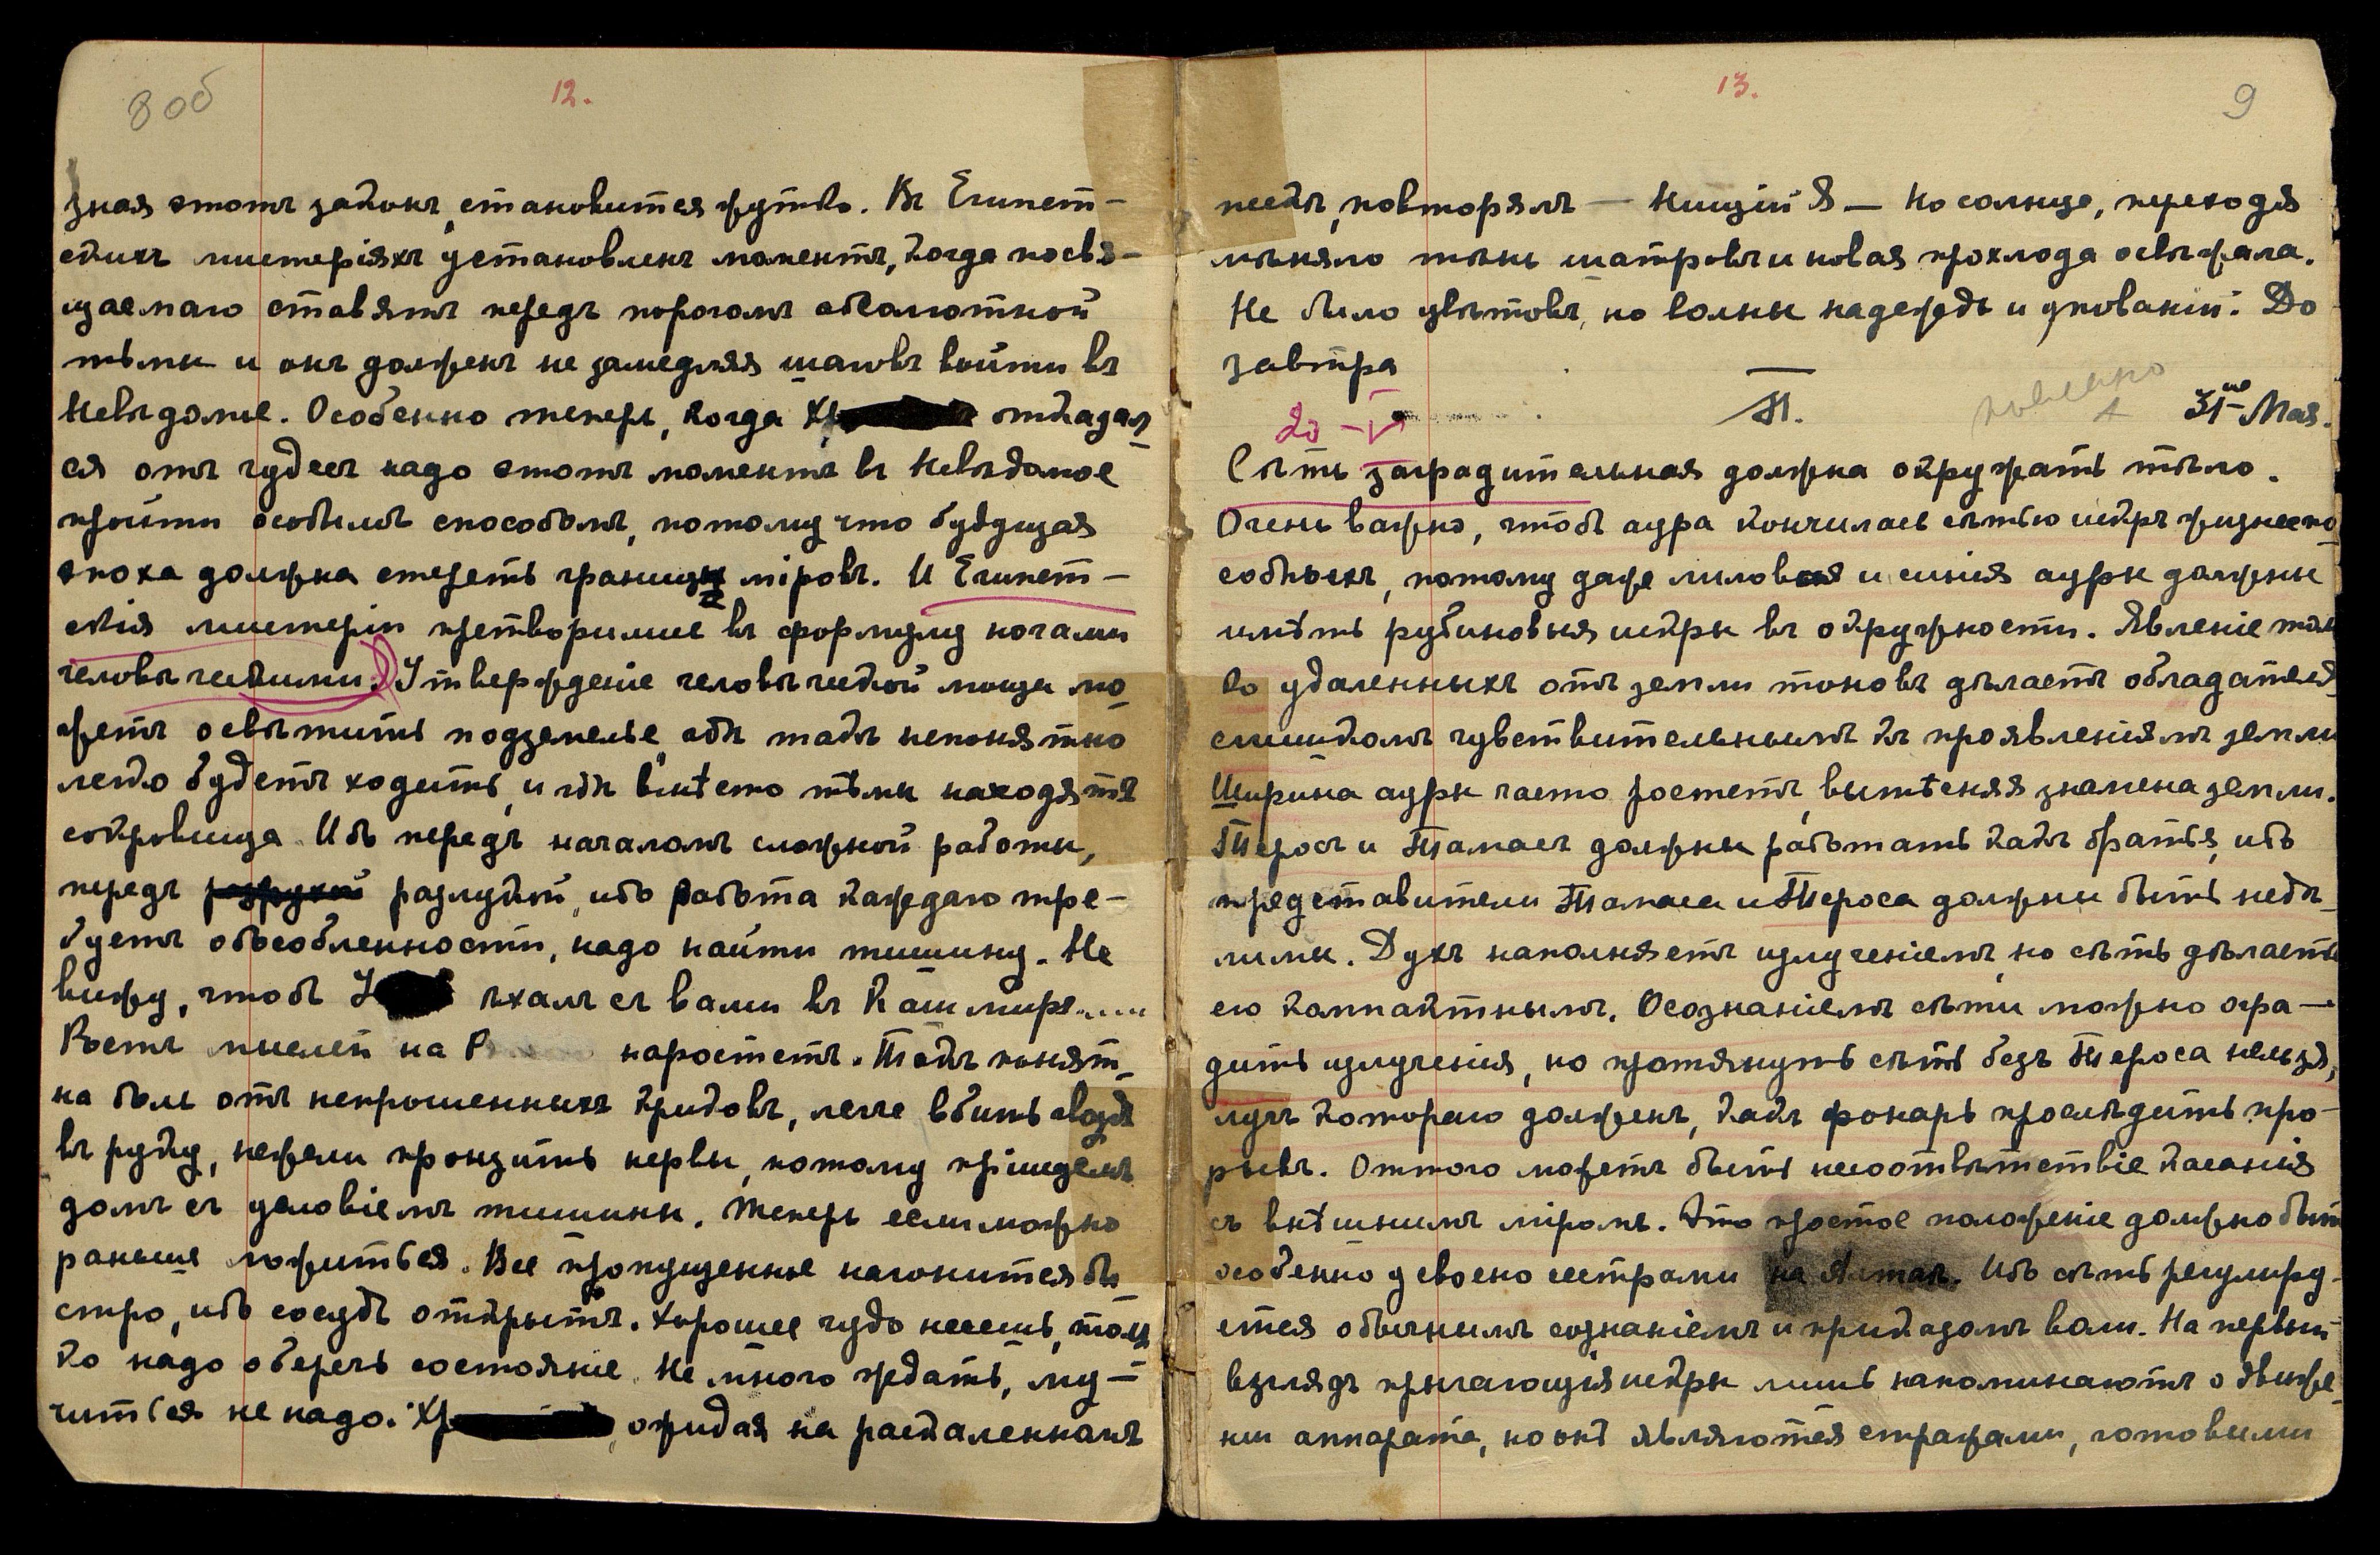 8 об
12.
Зная этотъ законъ, становится жутко. Въ Египет-
скихъ мистеріяхъ установленъ моментъ, когда посвя-
щаемаго ставятъ передъ порогомъ абсолютной
тьмы и онъ долженъ не замедляя шаговъ войти въ
Невѣдомое. Особенно теперь, когда отказал
ся отъ чудесъ надо этотъ моментъ въ Невѣдомое
пройти особымъ способомъ, потому что будущая
эпоха должна стереть границы міровъ. И Египет-
скія мистеріи претворились въ формулу ногами
человѣческими. Утвержденіе человѣческой мощи мо
жетъ освѣтить подземелье, гдѣ такъ непонятно
легко будетъ ходить, и гдѣ вмѣсто тьмы находятся
сокровища. Ибо передъ началомъ сложной работы,
передъ разлукой, ибо работа каждаго тре-
буетъ обособленности, надо найти тишину. Не
вижу, чтобъ ѣхалъ съ вами въ Кашмиръ.....
Ростъ мыслей на наростетъ. Такъ понят-
на боль отъ непрошенныхъ криковъ, легче вбить гвоздь
въ руку, нежели пронзить нервы, потому пришлемъ
домъ съ условіемъ тишины. Теперь если можно
раньше ложиться. Все пропущенное нагонится бы
стро, ибо сосудъ открытъ. Хорошее чудо несешь, толь
ко надо оберечь состояніе. Не много ждать, му-
читься не надо. ожидая на раскаленномъ
13.
9
пескѣ, повторялъ — Нищій Я — Но солнце, переходя
мѣняло тѣнь шатровъ и новая прохлада освѣжала.
Не было цвѣтовъ, но волны надеждъ и упованій. До
завтра
31го Мая.
Сѣть заградительная должна окружать тѣло.
Очень важно, чтобъ аура кончилась сѣтью искръ жизнеспо
собныхъ, потому даже лиловыя и синія ауры должны
имѣть рубиновыя искры въ окружности. Явленіе толь
ко удаленныхъ отъ земли тоновъ дѣлаетъ обладателя
слишкомъ чувствительнымъ къ проявленіямъ земли
Ширина ауры часто ростетъ, вытѣсняя знамена земли.
Теросъ и Тамасъ должны работать какъ братья, ибо
представители Тамаса и Тероса должны быть недѣ-
лимы. Духъ наполняетъ излученіемъ, но сѣть дѣлаетъ
его компактнымъ. Осознаніемъ сѣти можно огра-
дить излученія, но протянуть сѣть безъ Тероса нельзя,
лучъ котораго долженъ, какъ фонарь прослѣдить про-
рывъ. Оттого можетъ быть несоотвѣтствіе касанія
съ внѣшнимъ міромъ. Это простое положеніе должно быть
особенно усвоено сестрами на Алтаѣ. Ибо сѣть регулиру-
ется обычнымъ сознаніемъ и приказомъ воли. На первый
взглядъ прыгающія искры лишь напоминаютъ о движе-
ніи аппарата, но онѣ являются стражами, готовыми